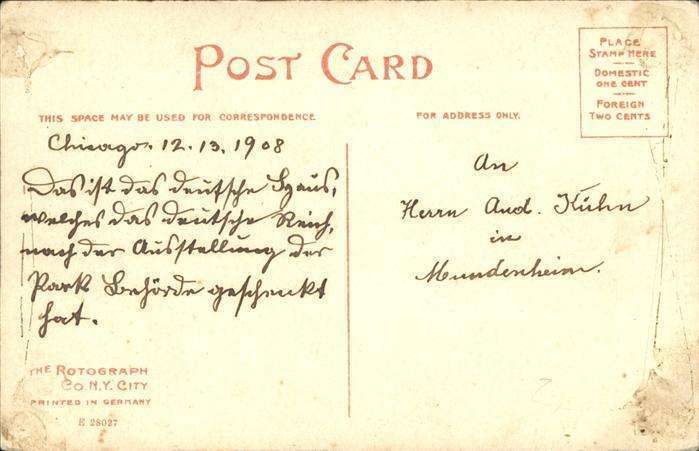 POST CARD
PLACE
STAMP HERE
DOMESTIC
ONE CENT
FOREIGN
TWO CENTS
THIS SPACE MAY BE USED FOR CORRESPONDENCE
FOR ADDRESS ONLY.
Chicago. 12. 13. 1908
Das ist das deutsche Haus,
welches das deutsche Reich,
nach der Ausstellung der
Park Behörde geschenkt
hat.
An
Herrn And. Kühn
in
Mundenheim.
THE ROTOGRAPH
CO. N.Y. CITY
PRINTED IN GERMANY
E 28027